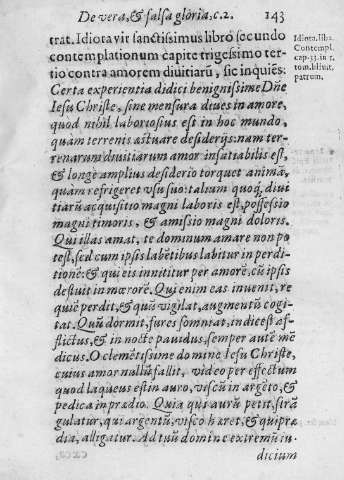 De vera, & falsa gloria. c. 2. 143
trat. Idiota vir sanctissimus libro secundo
contemplationum capite trigesimo ter-
tio contra amorem diuitiarũ, sic inquiẽs:
Certa experientia didici benignissime Dñe
Iesu Christe, sine mensura diues in amore,
quod nihil laboriosius est in hoc mundo,
quam terrenis æstuare desiderijs: nam ter-
renarum diuitiarum amor insatiabilis est,
& longè amplius desiderio torquet animã,
quam refrigeret vsu suo: talium quoq; diui
tiarũ acquisitio magni laboris est, possessio
magni timoris, & amissio magni doloris.
Qui illas amat, te dominum amare non po
test, sed cum ipsis labẽtibus labitur in perdi-
tionẽ: & qui eis innititur per amorẽ, cũ ipsis
destuit in mœrorẽ. Qui enim eas inuenit, re
quiẽ perdit, & quũ vigilat, augmentũ cogi-
tat. Quũ dormit, fures somniat, in die est af-
flictus, & in nocte pauidus, semper autẽ mẽ
dicus. O clemẽtissime domine Iesu Christe,
cuius amor nullũ fallit, video per effectum
quod laqueus est in auro, viscũ in argẽto, &
pedica in prædio. Quia qui aurũ petit, strã
gulatur, qui argentũ, visco hæret, & qui præ
dia, alligatur. Ad tuũ domine extremũ iu-
dicium
Idiota. lib. 2.
Contempl.
cap. 33. in 5.
tom. bliot.
patrum.